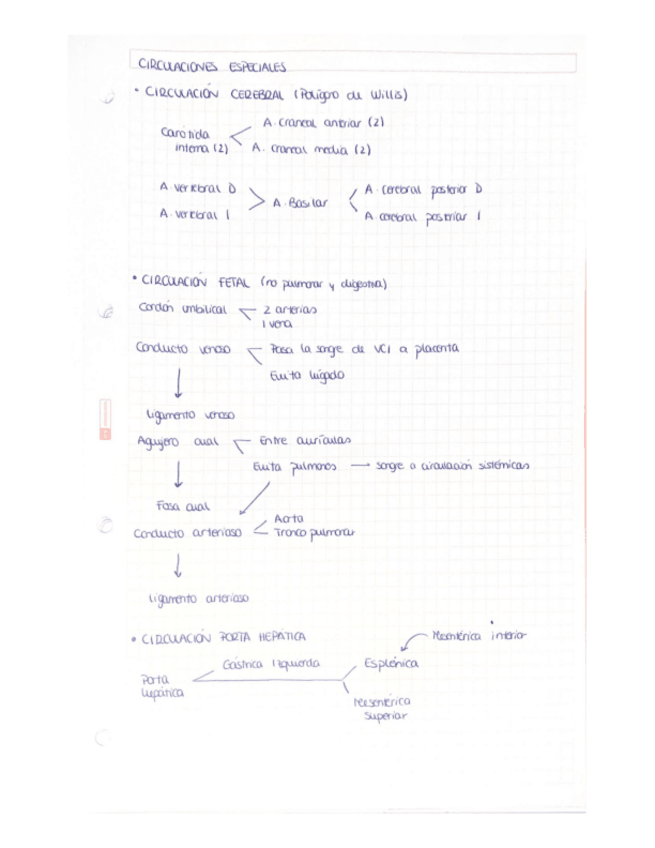 CIRCULACIONES ESPECIALES
• CIRCULACIÓN CEREBRAL (Polígro de Willis)
Carótida interna (2)
A. craneal anterior (2)
A. craneal media (2)
A. vertebral D
A. vertebral I
A. Basilar
A. cerebral posterior D
A. cerebral posterior I
• CIRCULACIÓN FETAL (no pulmonar y digestiva)
Cordón umbilical
2 arterias
1 vena
Conducto venoso
Pasa la sangre de VCI a placenta
Evita hígado
Ligamento venoso
Agujero oval
Entre aurículas
Evita pulmones → sangre a circulación sistémicas
Fosa oval
Conducto arterioso
Aorta
Tronco pulmonar
Ligamento arterioso
• CIRCULACIÓN PORTA HEPÁTICA
Mesentérica inferior
Gástrica Izquierda
Esplénica
Porta
hepática
Mesentérica
Superior